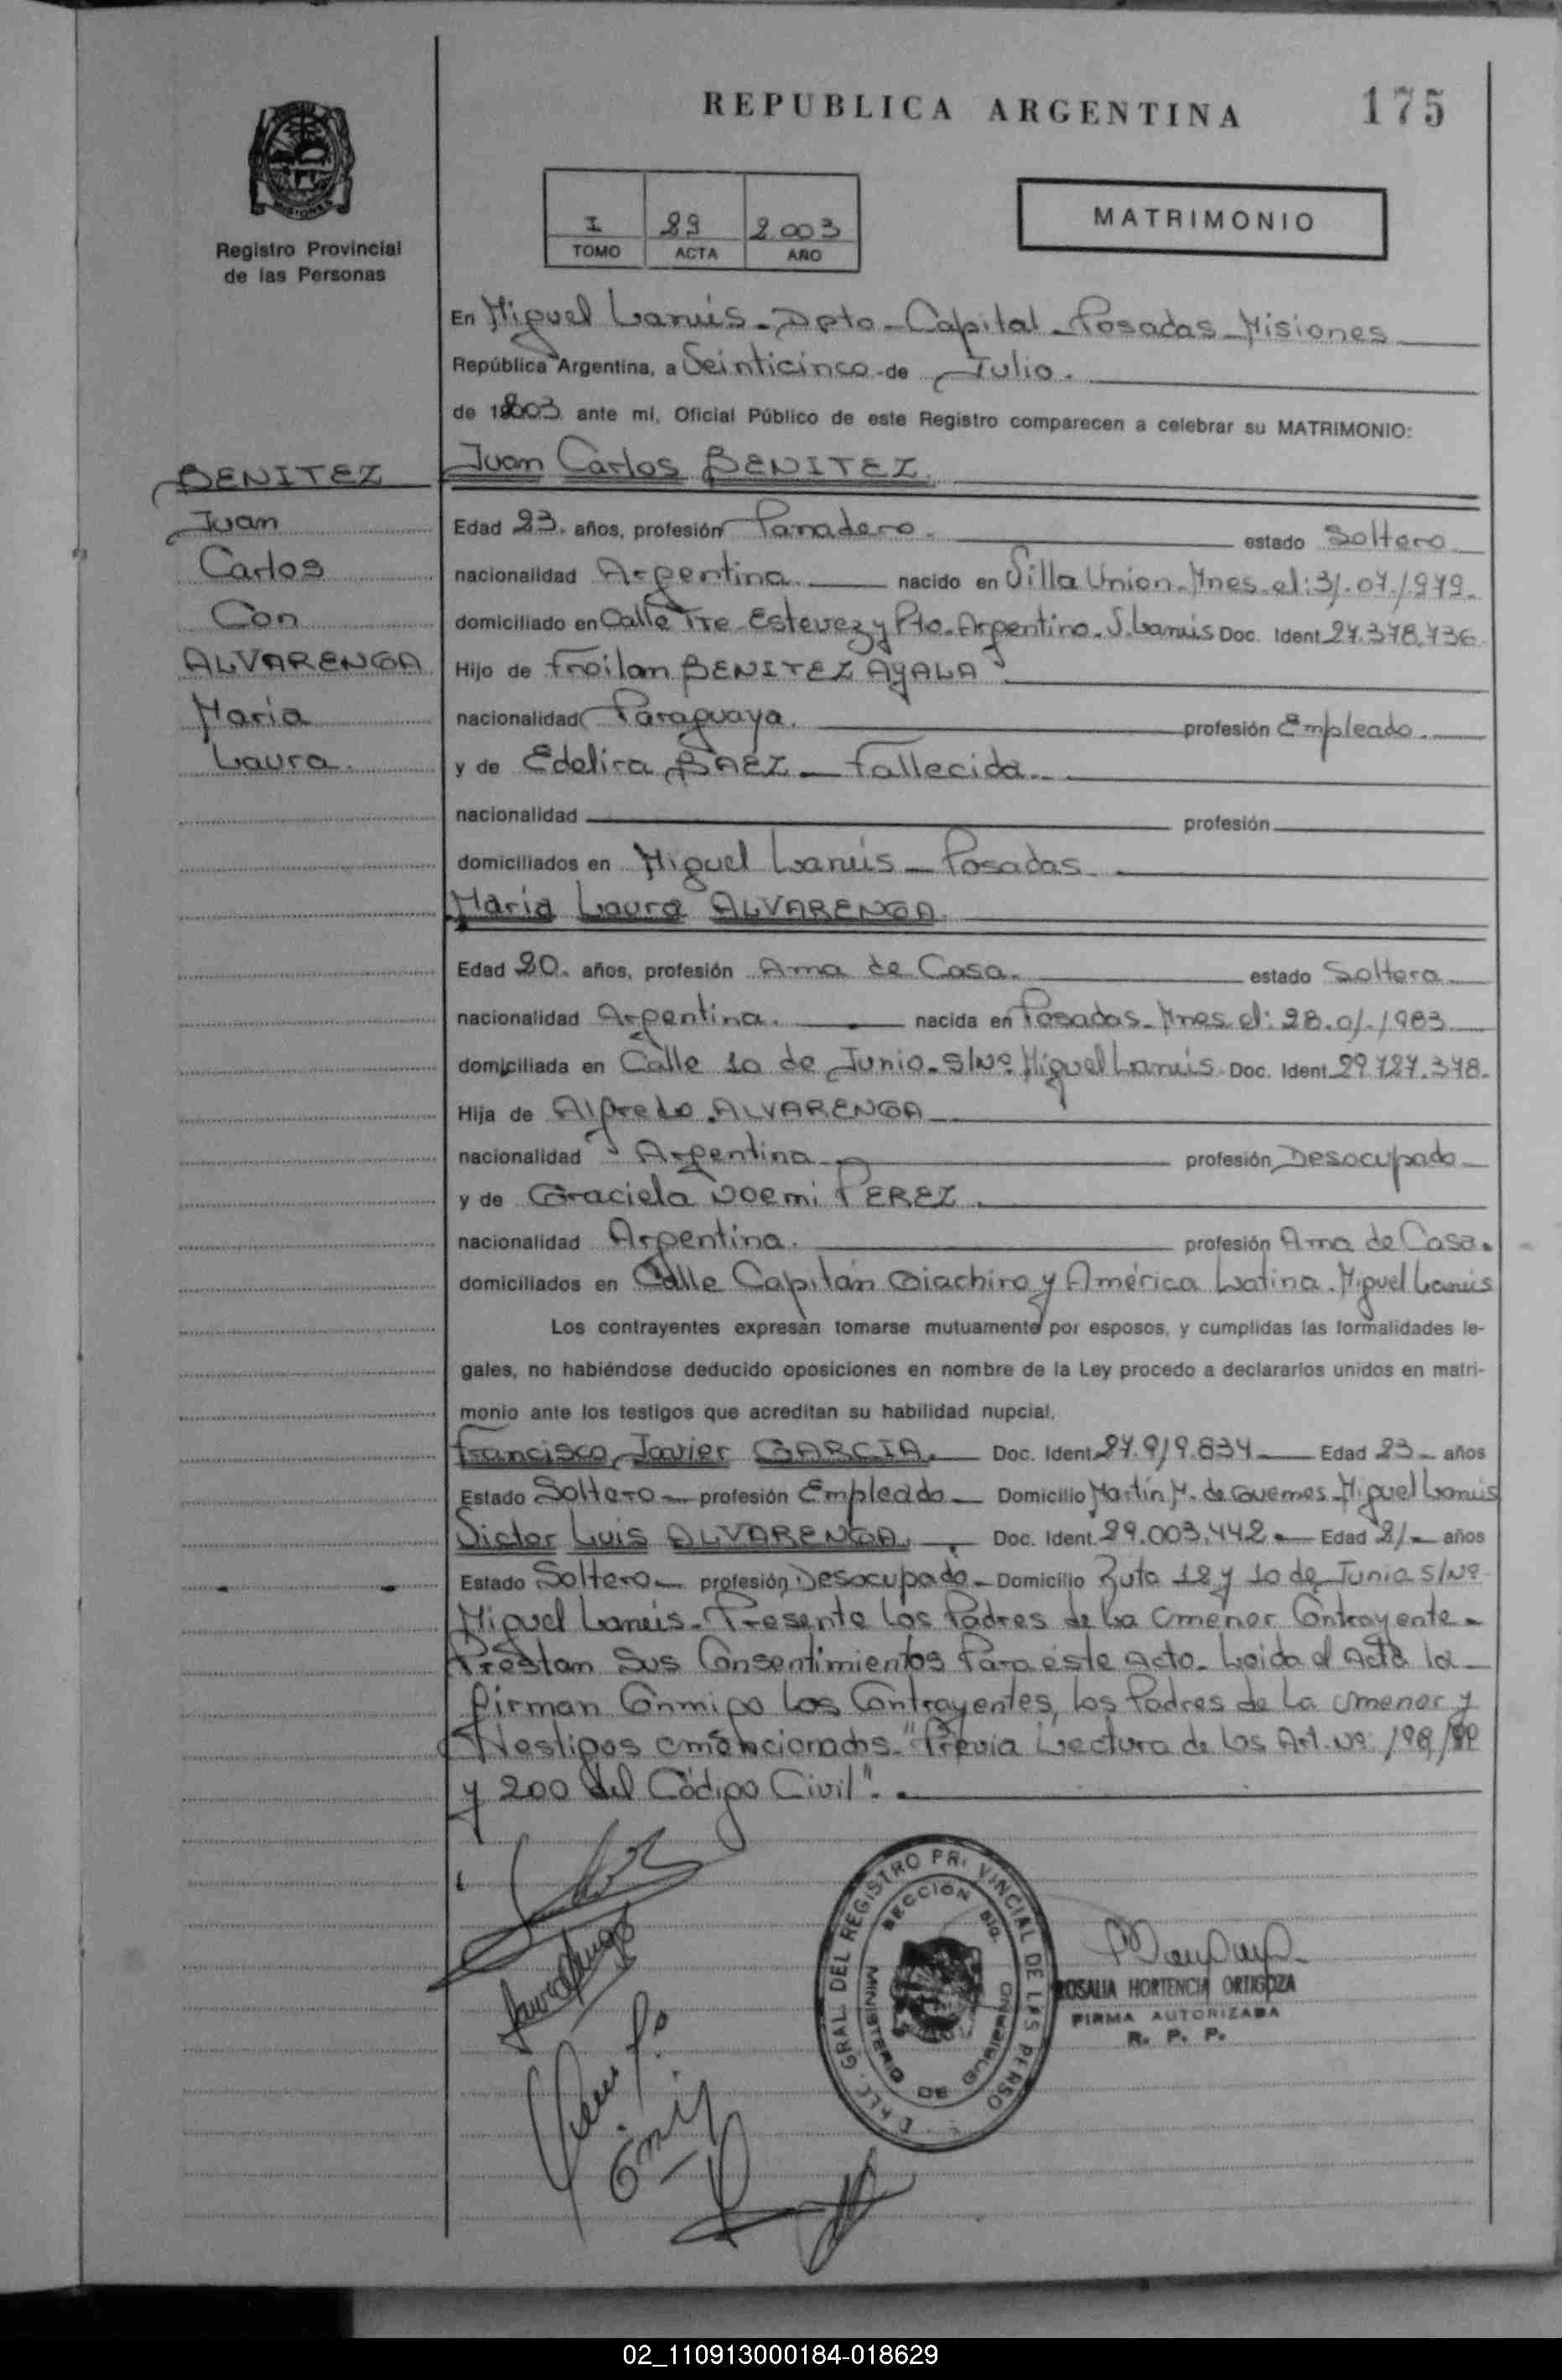 REPUBLICA ARGENTINA
175
MISIONES
Registro Provincial
de las Personas
I 29 2.003
TOMO ACTA AÑO
MATRIMONIO
En Miguel Lanús - Dpto - Capital - Posadas - Misiones
República Argentina, a Veinticinco de Julio.
de 2003 ante mí, Oficial Público de este Registro comparecen a celebrar su MATRIMONIO:
BENITEZ
Juan
Carlos
Con
ALVARENGA
María
Laura.
Juan Carlos BENITEZ.
Edad 23. años, profesión Panadero. estado Soltero
nacionalidad Argentina. nacido en Villa Union - Mnes. el: 31.07.1979.
domiciliado en Calle Tte Estevez y Pto. Argentino. Lanús Doc. Ident 27.378.736
Hijo de Froilan BENITEZ AYALA
nacionalidad Paraguaya. profesión Empleado.
y de Edelira BAEZ - Fallecida.
nacionalidad profesión
domiciliados en Miguel Lanús - Posadas
María Laura ALVARENGA
Edad 20. años, profesión Ama de Casa. estado Soltera
nacionalidad Argentina. nacida en Posadas - Mnes. el: 28.01.1983
domiciliada en Calle 10 de Junio - S/Nº Miguel Lanús Doc. Ident 29.727.378.
Hija de Alfredo ALVARENGA
nacionalidad Argentina profesión Desocupado
y de Graciela Noemi PEREZ.
nacionalidad Argentina. profesión Ama de Casa.
domiciliados en Calle Capitán Giachino y América Latina. Miguel Lanús
Los contrayentes expresan tomarse mutuamente por esposos, y cumplidas las formalidades le-
gales, no habiéndose deducido oposiciones en nombre de la Ley procedo a declararlos unidos en matri-
monio ante los testigos que acreditan su habilidad nupcial.
Francisco Javier GARCIA. Doc. Ident 27.919.834 Edad 23 años
Estado Soltero profesión Empleado Domicilio Martín M. de Guemes - Miguel Lanús
Victor Luis ALVARENGA. Doc. Ident 29.003.442 Edad 21 años
Estado Soltero profesión Desocupado Domicilio Ruta 12 y 10 de Junio S/Nº
Miguel Lanús - Presente Los Padres de La menor Contrayente -
Préstan Sus Consentimientos Para éste Acto - Leida el Acta la
firman Conmigo los Contrayentes, los Padres de La menor y
Testigos mencionados. "Previa Lectura de los Art. Nº: 198/99
y 200 del Código Civil".
DIREC. GRAL. DEL REGISTRO PROVINCIAL DE LAS PERSO
SECCION
MINISTERIO DE GOBIERNO
ROSALIA HORTENCIA ORTIGOZA
FIRMA AUTORIZADA
R. P. P.
02_110913000184-018629